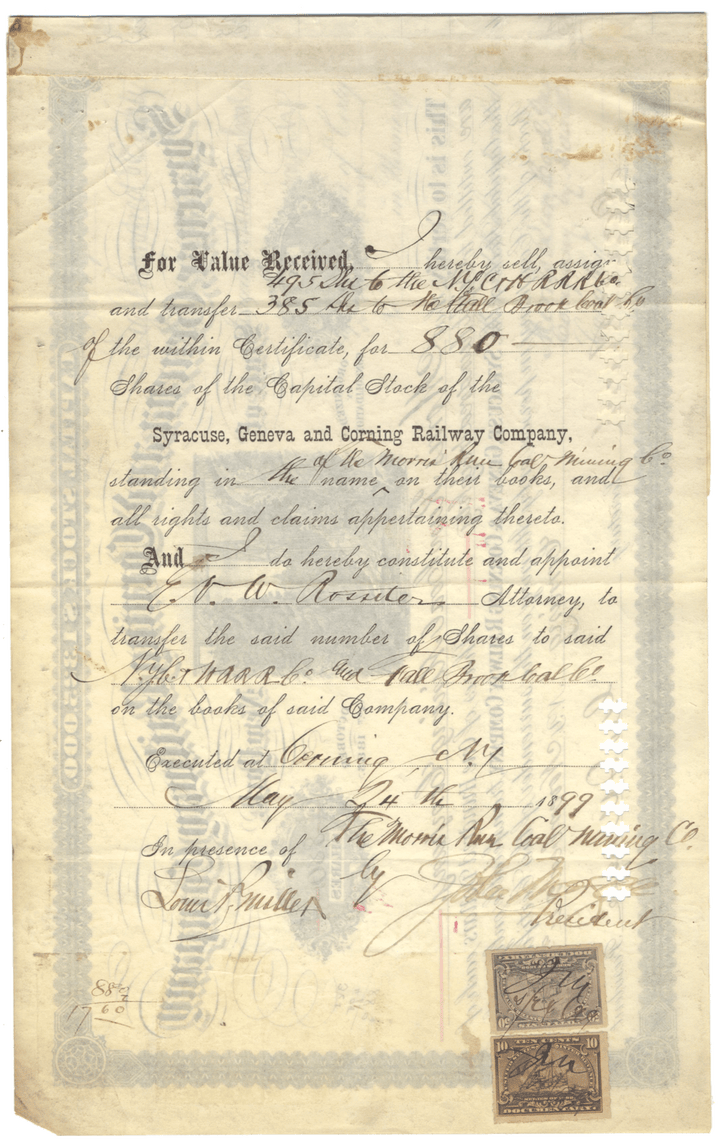 For Value Received, I hereby sell, assign
495 Shs to the N.Y.C & H R R R Co.
and transfer 385 Shs to the Fall Brook Coal Co
Of the within Certificate, for 880
Shares of the Capital Stock of the
Syracuse, Geneva and Corning Railway Company,
of the Morris Run Coal Mining Co
standing in the name ^ on their books, and
all rights and claims appertaining thereto.
And I do hereby constitute and appoint
E. V. W. Rossiter Attorney, to
transfer the said number of Shares to said
N.Y.C. & H R R R Co. and Fall Brook Coal Co.
on the books of said Company.
Executed at Corning N.Y
May 24th 1899
The Morris Run Coal Mining Co.
In presence of
by
Louis P. Miller
President
880
2
17 60
TEN CENTS
10 10
DOCUMENTARY